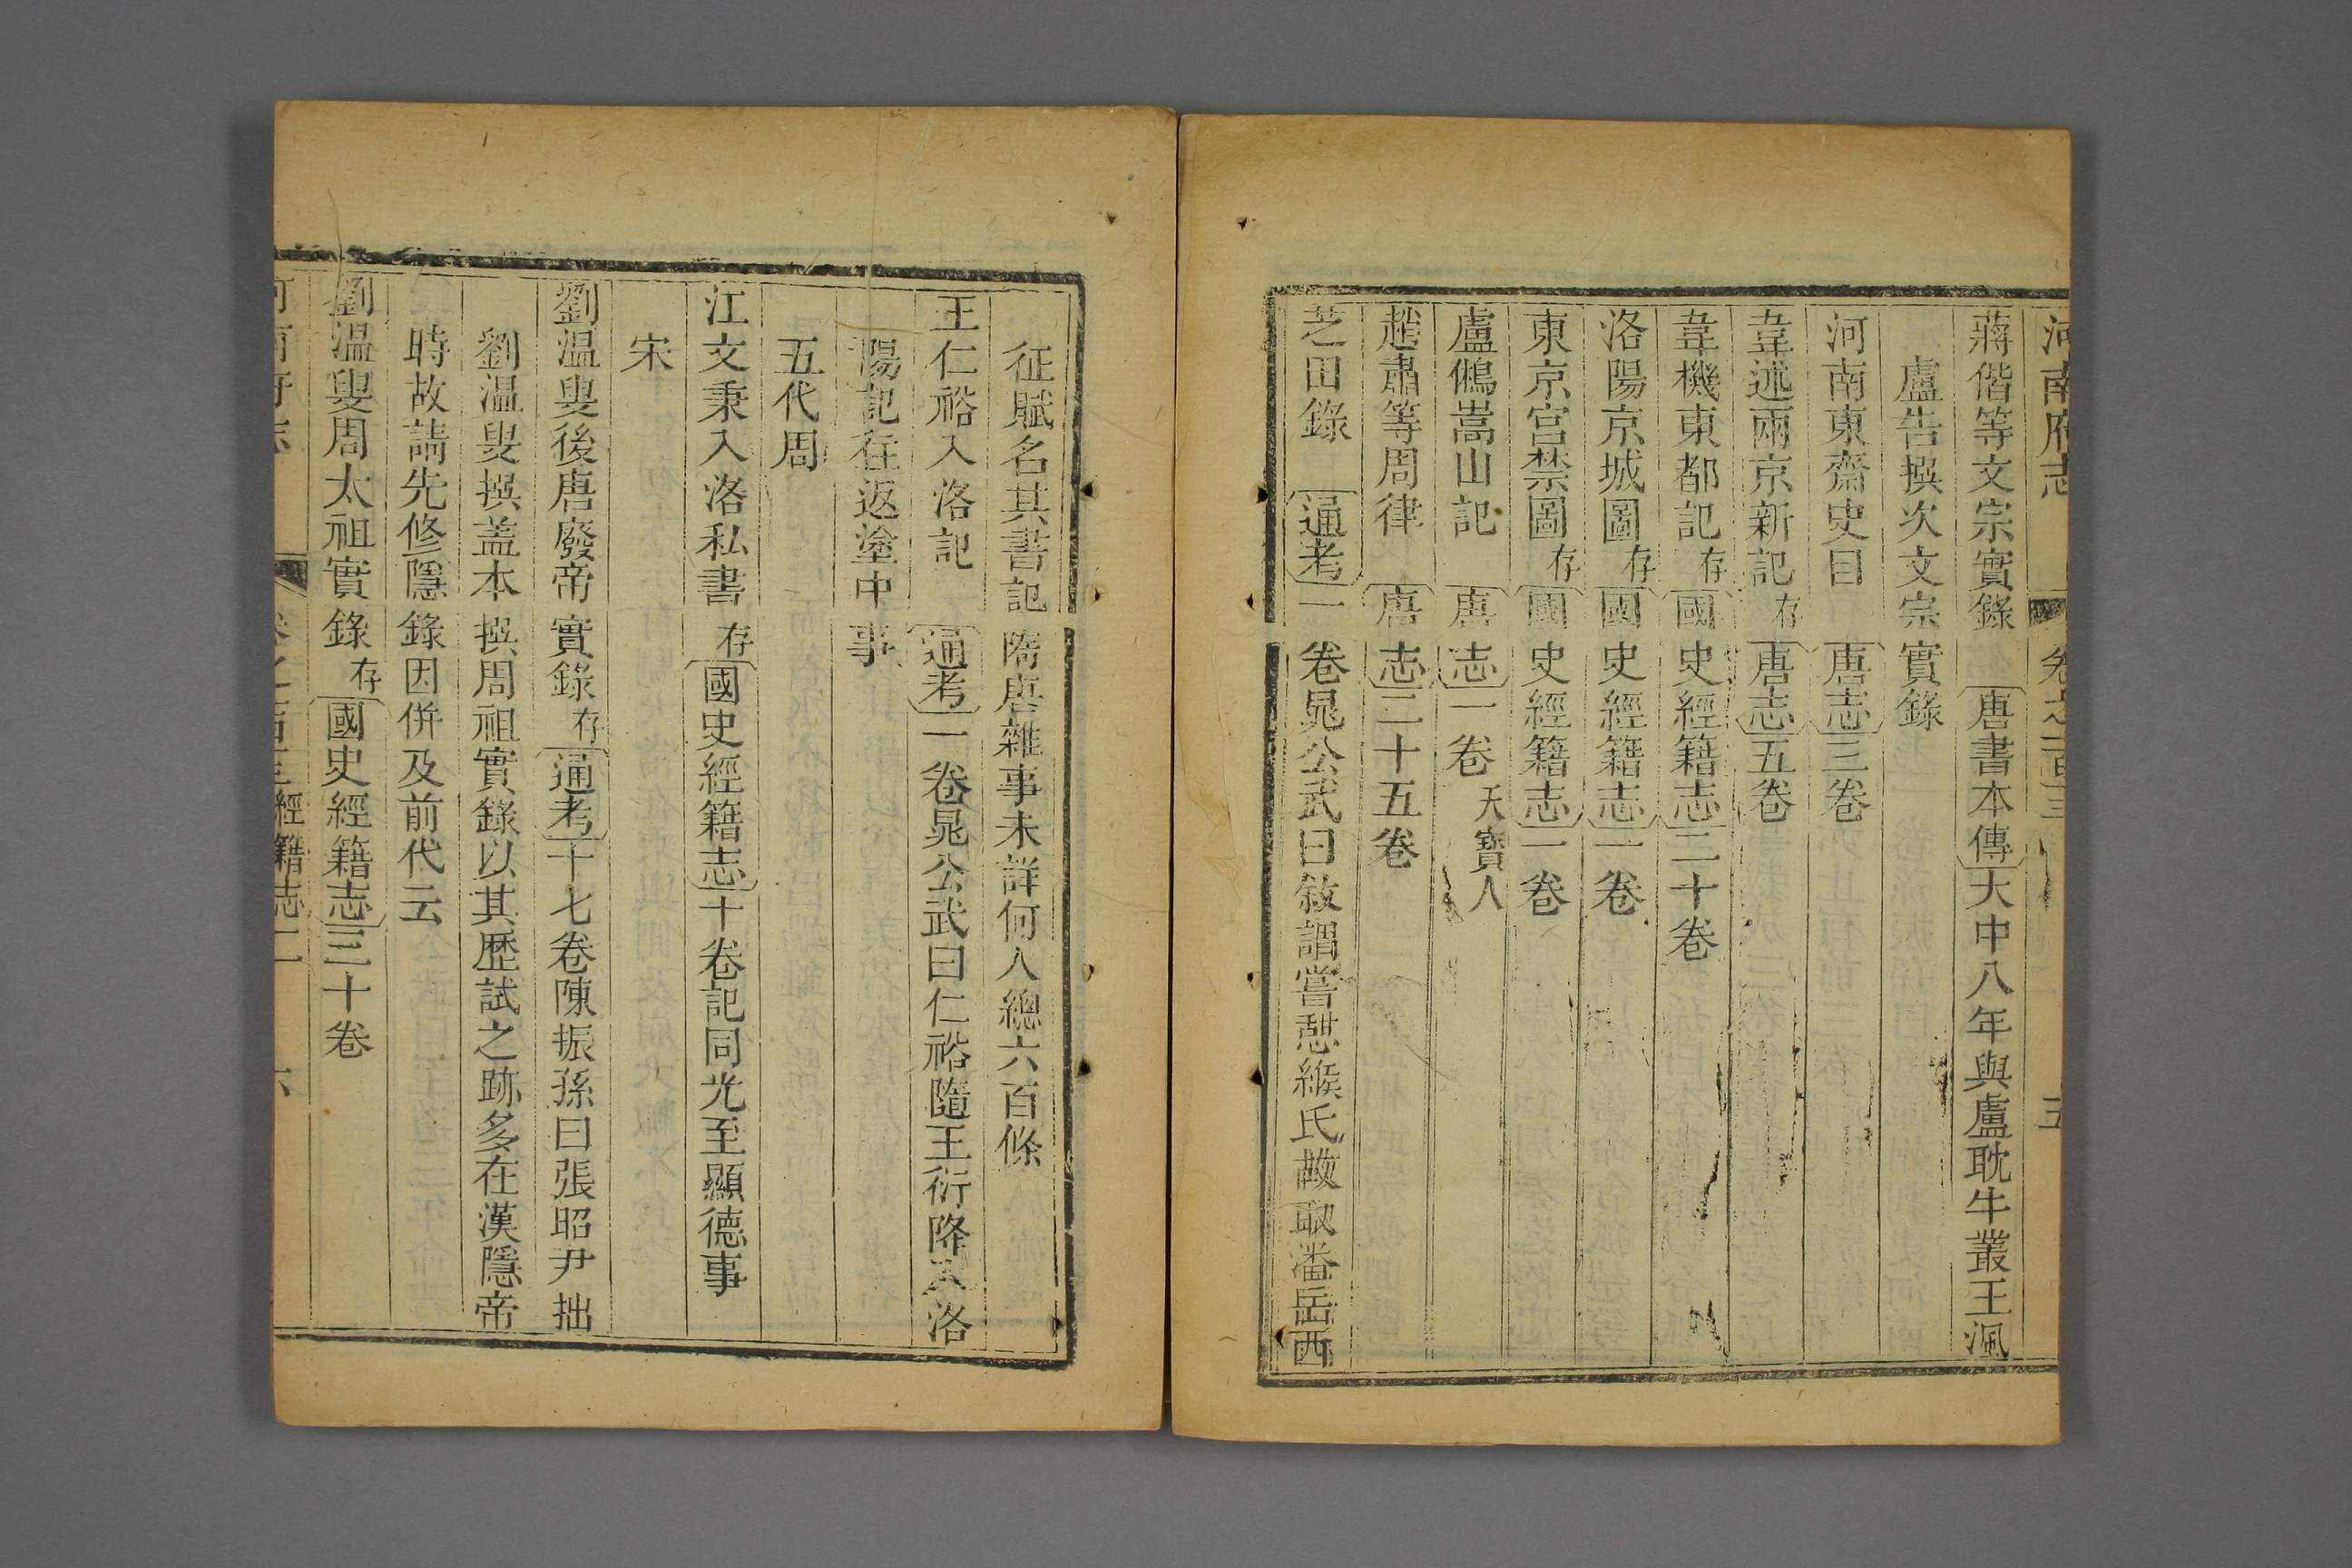 河南府志 卷之一百三 五
蔣偕等文宗實錄 唐書本傳大中八年與盧耽牛叢王渢
盧告撰次文宗實錄
河南東齋史目 唐志三卷
韋述兩京新記存唐志五卷
韋機東都記存國史經籍志二十卷
洛陽京城圖存國史經籍志一卷
東京宮禁圖存國史經籍志一卷
盧鵂嵩山記 唐志一卷天寶人
趙肅等周律 唐志二十五卷
芝田錄 通考一卷晁公武曰敘謂嘗憩緱氏故取潘岳西
征賦名其書記隋唐雜事未詳何人總六百條
王仁裕入洛記 通考一卷晁公武曰仁裕隨王衍降入洛
陽記在返塗中事
五代周
江文秉入洛私書存國史經籍志十卷記同光至顯德事
宋
劉溫叟後唐廢帝實錄存通考十七卷陳振孫曰張昭尹拙
劉溫叟撰蓋本撰周祖實錄以其歷試之跡多在漢隱帝
時故請先修隱錄因併及前代云
劉溫叟周太祖實錄存國史經籍志三十卷
河南府志 卷之一百三經籍志二 六